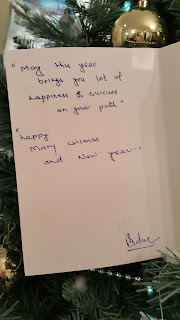 "May this year
brings you lot of
happiness & success
on your path"
"happy
Mary
and New year...